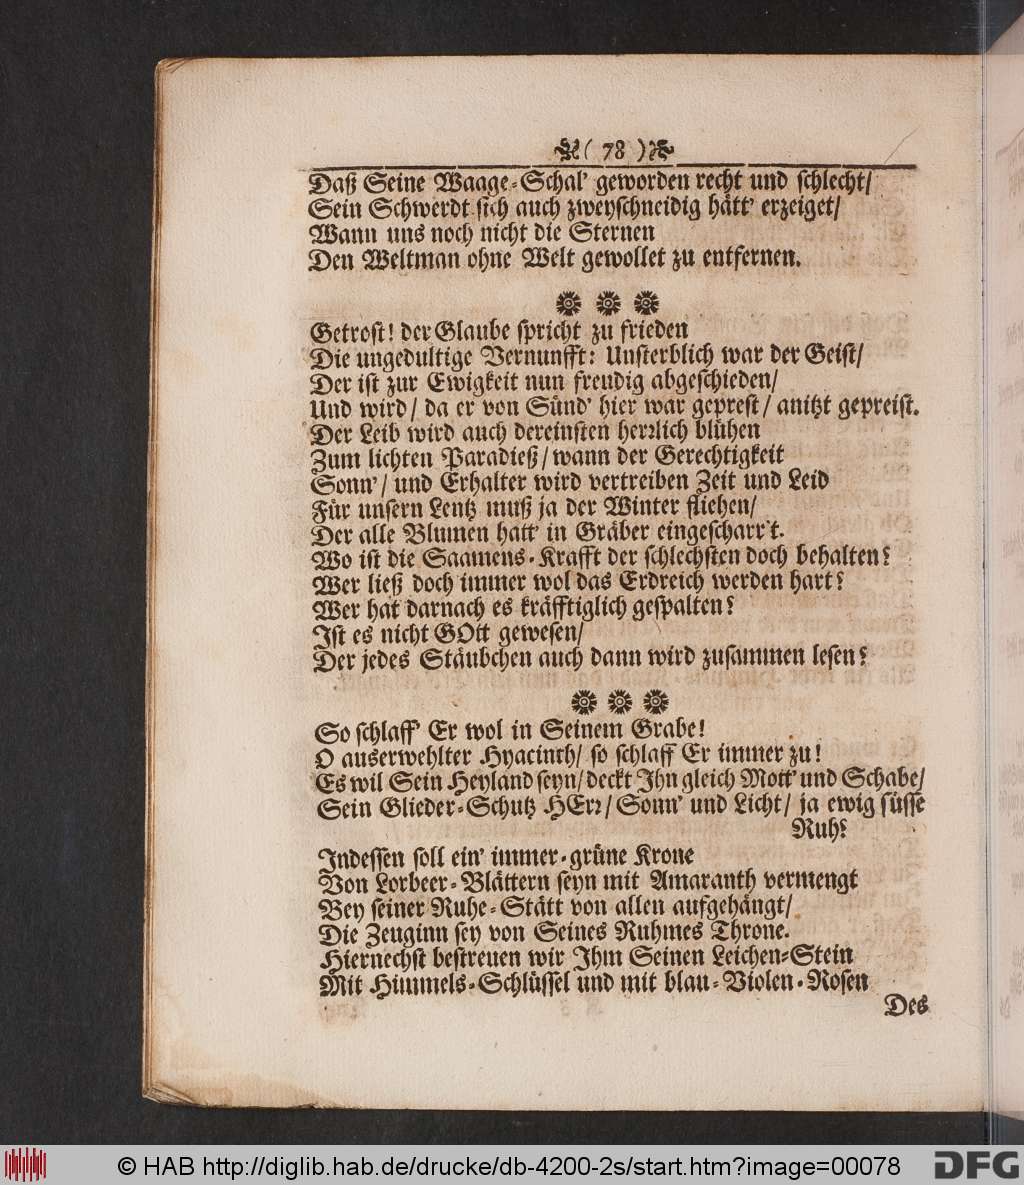 ( 78 )
Daß Seine Waage-Schal' geworden recht und schlecht/
Sein Schwerdt sich auch zweyschneidig hätt' erzeiget/
Wann uns noch nicht die Sternen
Den Weltman ohne Welt gewollet zu entfernen.
Getrost! der Glaube spricht zu frieden
Die ungedultige Vernunfft: Unsterblich war der Geist/
Der ist zur Ewigkeit nun freudig abgeschieden/
Und wird/ da er von Sünd' hier war geprest/ anitzt gepreist.
Der Leib wird auch dereinsten herꝛlich blühen
Zum lichten Paradieß/ wann der Gerechtigkeit
Sonn'/ und Erhalter wird vertreiben Zeit und Leid
Für unsern Lentz muß ja der Winter fliehen/
Der alle Blumen hatt' in Gräber eingescharr't.
Wo ist die Saamens-Krafft der schlechsten doch behalten?
Wer ließ doch immer wol das Erdreich werden hart?
Wer hat darnach es kräfftiglich gespalten?
Ist es nicht GOtt gewesen/
Der jedes Stäubchen auch dann wird zusammen lesen?
So schlaff' Er wol in Seinem Grabe!
O auserwehlter Hyacinth/ so schlaff Er immer zu!
Es wil Sein Heyland seyn/ deckt Ihn gleich Mott' und Schabe/
Sein Glieder-Schutz HErꝛ/ Sonn' und Licht/ ja ewig süsse
Ruh?
Indessen soll ein' immer-grüne Krone
Von Lorbeer-Blättern seyn mit Amaranth vermengt
Bey seiner Ruhe-Stätt von allen aufgehängt/
Die Zeuginn sey von Seines Ruhmes Throne.
Hiernechst bestreuen wir Ihm Seinen Leichen-Stein
Mit Himmels-Schlüssel und mit blau-Violen-Rosen
Des
© HAB http://diglib.hab.de/drucke/db-4200-2s/start.htm?image=00078
DFG